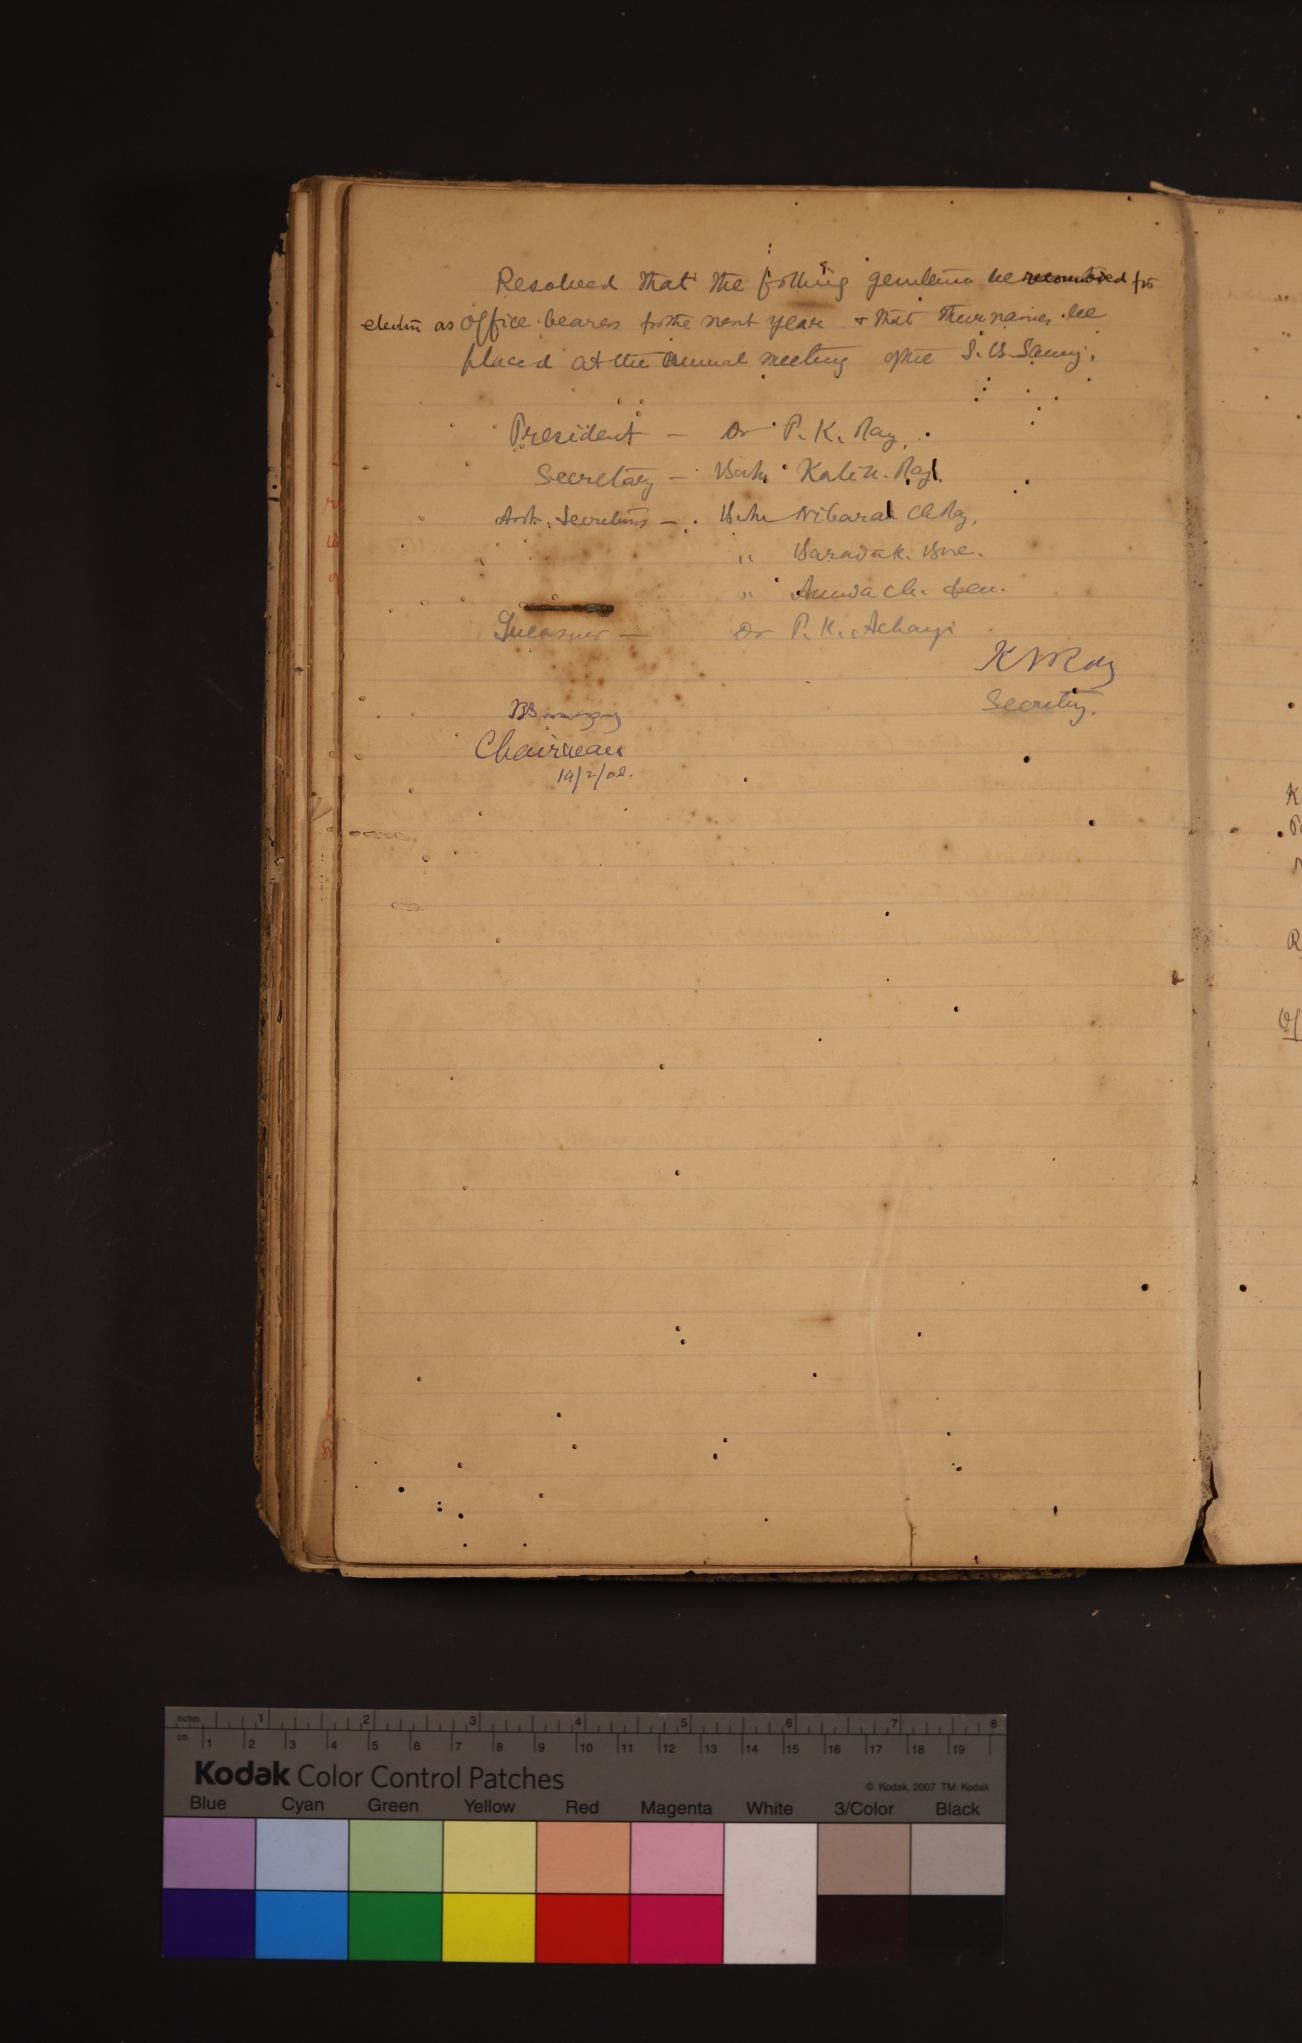 Resolved that the follwing gentlemen be recomended for
election as office bearers for the next year & that their names be
placed at the annual meeting of the S. B. Samaj.
President — Dr P. K. Ray.
Secretary — Babu Kali N. Ray.
Asst. Secretaries — Babu Nibaran Ch Ray.
" Barada K. Bose.
" Ananda Ch. Sen.
Treasurer — Dr P. K. Acharji
K N Ray
Secretary.
Chairman
19/2/02.
inches 1 2 3 4 5 6 7 8
cm 1 2 3 4 5 6 7 8 9 10 11 12 13 14 15 16 17 18 19
Kodak Color Control Patches
© Kodak, 2007 TM: Kodak
Blue Cyan Green Yellow Red Magenta White 3/Color Black